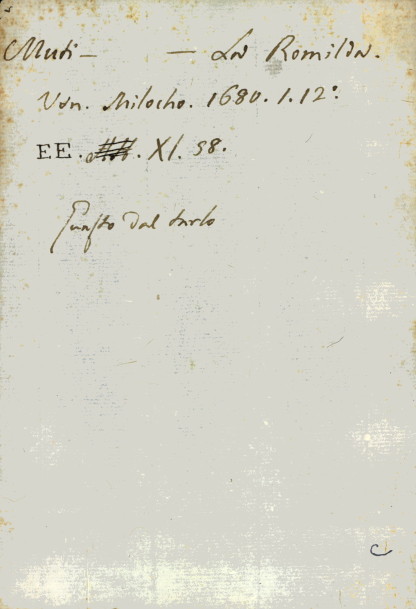 Muti — — La Romilda.
Ven. Milocho. 1680. 1. 12°.
EE. XI. 58.
Guasto dal tarlo
C